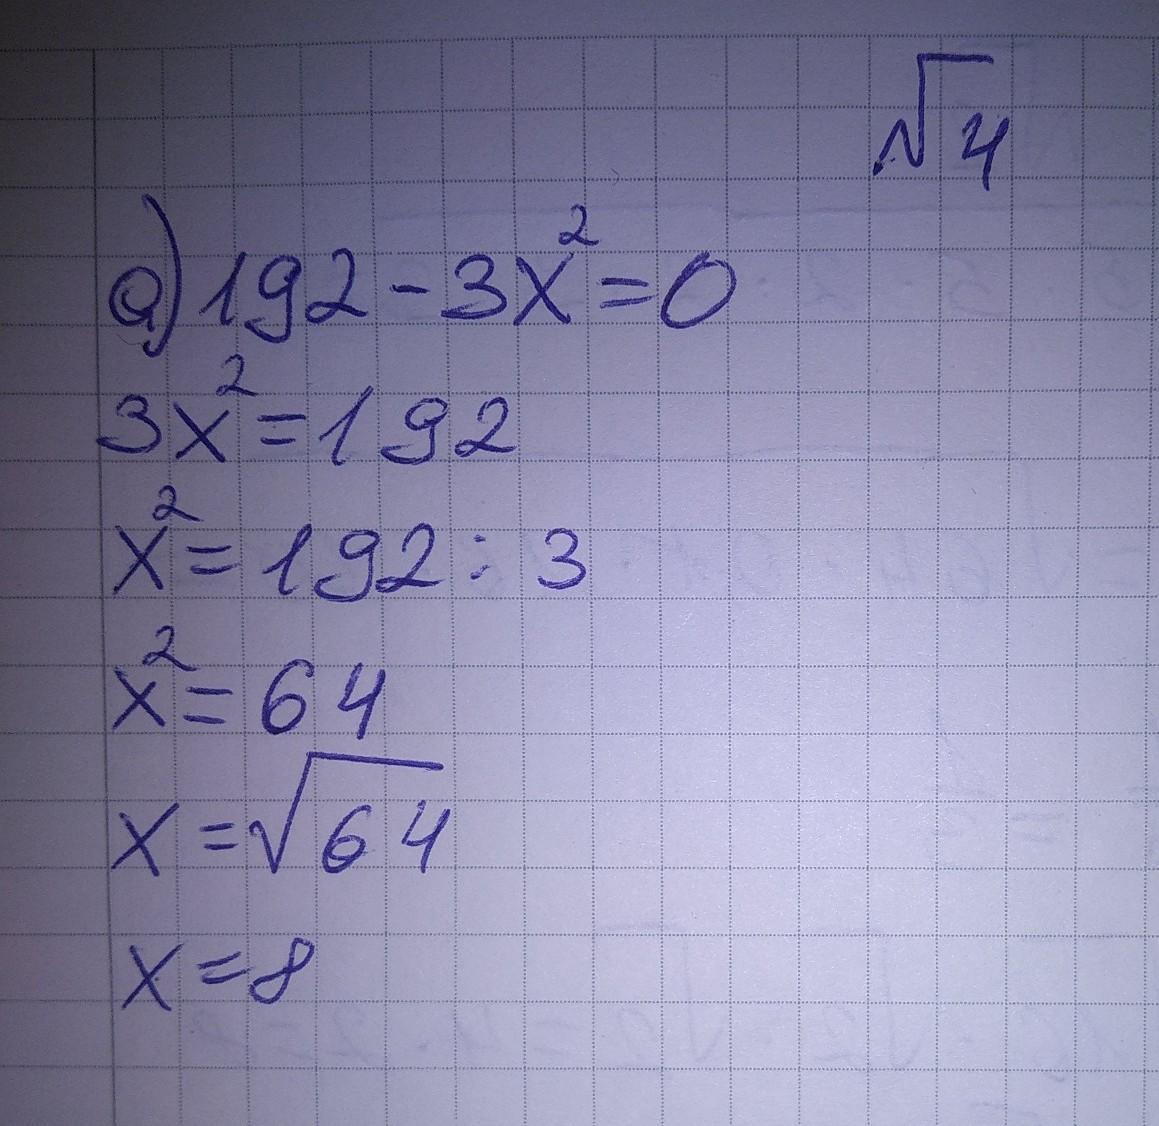 √4
a) 192 - 3x² = 0
3x² = 192
x² = 192 : 3
x² = 64
x = √64
x = 8